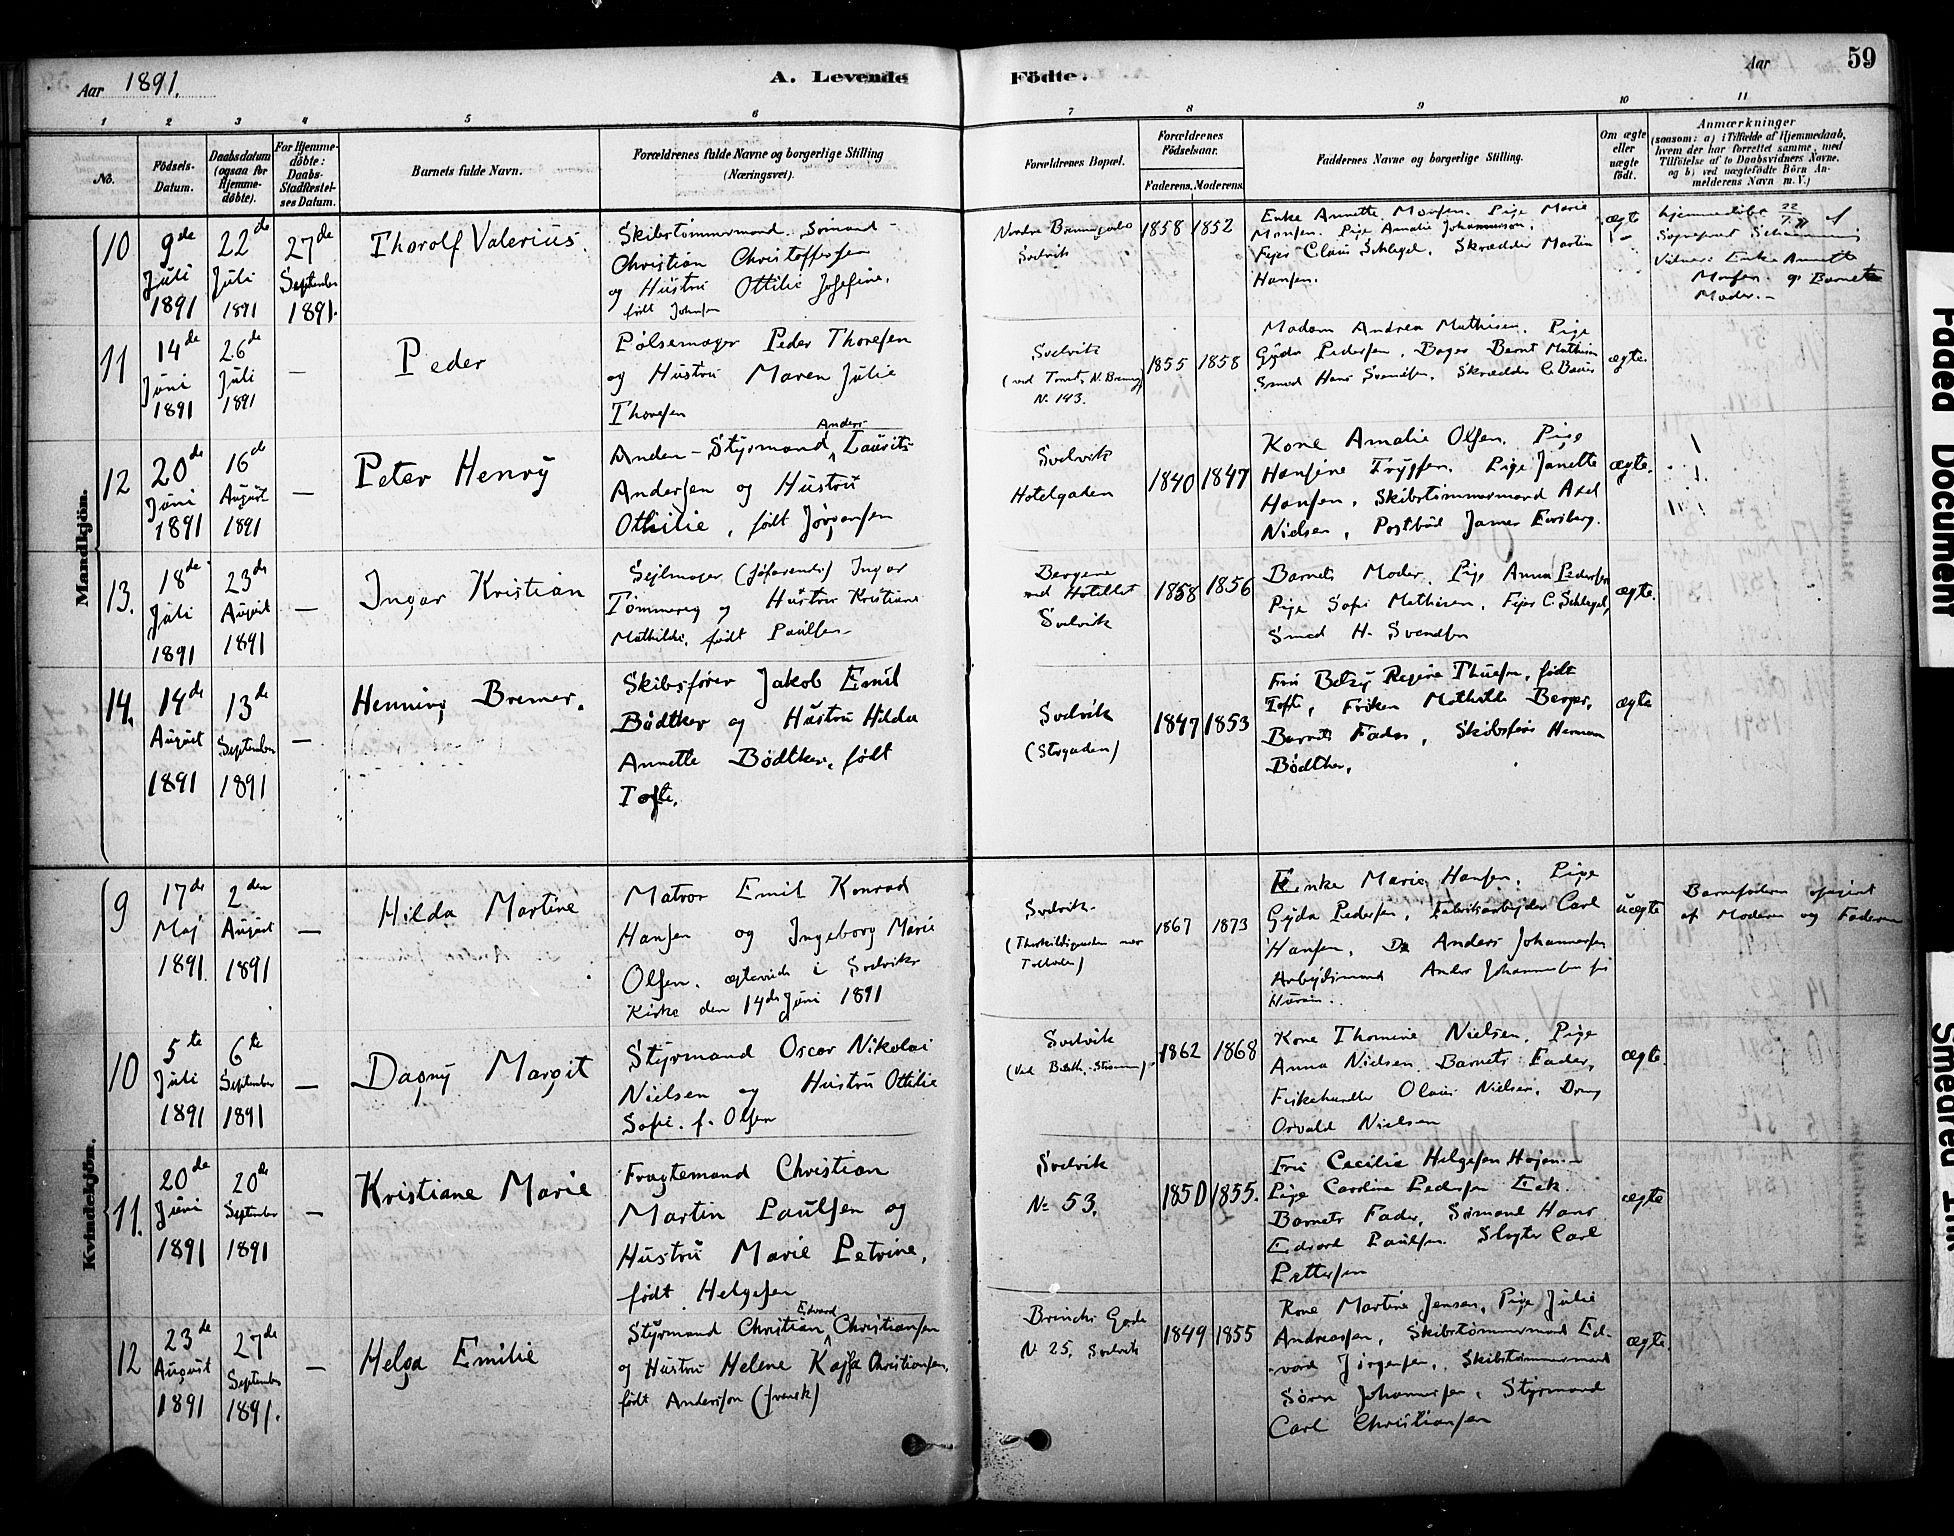 Aar 1891.
A. Levende Födte.
Aar
59
1 2 3 4 5 6 7 8 9 10 11
No.
Födsels-Datum.
Daabsdatum (ogsaa for Hjemme-döbte).
For Hjemme-döbte: Daabs-Stadfæstel-ses Datum.
Barnets fulde Navn.
Forældrenes fulde Navne og borgerlige Stilling (Næringsvei).
Forældrenes Bopæl.
Forældrenes Födselsaar.
Faderens. Moderens.
Faddernes Navne og borgerlige Stilling.
Om ægte eller uægte födt.
Anmærkninger
(saasom: a) i Tilfælde af Hjemmedaab, hvem der har forrettet samme, med Tilföielse af to Daabsvidners Navne, og b) ved uægtefödte Börn An-melderens Navn m. V.)
Mandkjön.
10
9de Juli 1891
22de Juli 1891
27de September 1891.
Thorolf Valerius.
Skibstømmermand. Sømand
Christian Christoffersen
og Hustru Ottilie Josefine,
født Johnsen
Svelvik
1858 1852
Enke Annette Monsen. Pige Marie
Monsen. Pige Amalie Johannesen,
Fejer Claus Schlegel, Skrædder Martin
Hansen.
ægte
Hjemmedøbt 22/7 91 af
Vidner: Enke Annette
Monsen og Barnets
Moder.
11
14de Juni 1891
26de Juli 1891
—
Peder
Pølsemager Peder Thoresen
og Hustru Maren Julie
Thoresen
Svelvik
(ved Torvet, N. )
No 143.
1855 1858
Madam Andrea Mathisen. Pige
Gyda Pedersen, Bager Bernt Mathisen
Smed Hans Svendsen, Skrædder C.
ægte.
12
20de Juni 1891
16de August 1891
—
Peter Henry
Anden-Styrmand Anders Laurits
Andersen og Hustru
Othilie, født Jørgensen
Svelvik
Hotelgaden
1840 1847
Kone Amalie Olsen. Pige
Hansine Trygsen. Pige Janette
Hansen, Skibstømmermand Axel
Nielsen, Postbud James
ægte.
13.
18de Juli 1891
23de August 1891
—
Ingar Kristian
Sejlmager (søfarende) Ingar
Tømmerey og Hustru Kristiane
Mathilde, født Paulsen
Bergene
ved Hotellet
Svelvik
1858 1856
Barnets Moder. Pige Anna Pedersen
Pige Sofie Mathisen, Fejer C. Schlegel,
Smed H. Svendsen
ægte.
14.
14de August 1891
13de September 1891
—
Henning Bremer.
Skibsfører Jakob Emil
Bødtker og Hustru Hilda
Annette Bødtker, født
Tofte.
Svelvik
(Storgaden)
1847 1853
Fru Betzy Regine Thuesen, født
Tofte, Frøken Mathilde Berger,
Barnets Fader, Skibsfører Herman
Bødtker,
ægte
Kvindekjön.
9
17de Maj 1891
2den August 1891
—
Hilda Martine
Matros Emil Konrad
Hansen og Ingeborg Marie
Olsen. ægteviede i Svelviks
Kirke den 14de Juni 1891
Svelvik.
1867 1873
Enke Marie Hansen, Pige
Gyda Pedersen, Fabrikarbejder Carl
Hansen, Anders Johannesen
Arbejdsmand Anders Johannesen
uægte
Barnefaderen opgivet
af Moderen og Faderen
10
5te Juli 1891
6te September 1891
—
Dagny Margit
Styrmand Oscar Nikolai
Nielsen og Hustru Ottilie
Sofie. f. Olsen
Svelvik
1862 1868
Kone Thomine Nielsen. Pige
Anna Nielsen. Barnets Fader,
Fiskehandler Olaus Nielsen. Dreng
Osvald Nielsen
ægte.
11.
20de Juni 1891
20de September 1891
—
Kristiane Marie
Fragtemand Christian
Martin Paulsen og
Hustru Marie Petrine,
født Helgesen
Svelvik
No 53.
1850 1855.
Fru Cecilie Helgesen Højen
Pige Caroline Pedersen Eek.
Barnets Fader, Sømand Hans
Edvard Paulsen. Slagter Carl
Pettersen
ægte
12
23de August 1891
27de September 1891.
—
Helga Emilie
Styrmand Christian Edvard Christiansen
og Hustru Helene Kajsa Christiansen,
født Andersson (svensk)
Brinchs Gade
No 25. Svelvik
1849 1855
Kone Martine Jensen, Pige Julie
Andreassen, Skibstømmermand Ed-
vard Jørgensen, Skibstømmermand
Søren Johannesen, Styrmand
Carl Christiansen
ægte.
Faded Document
Smeared Ink